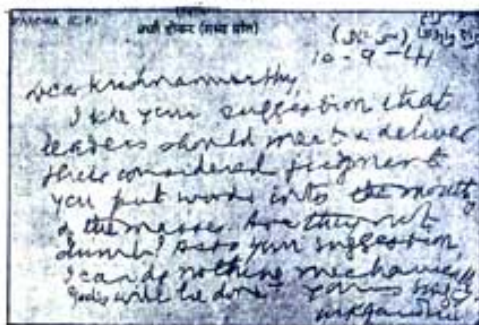 WARDHA (C.P.)
10-9-41
Dear Krishnamurthy,
I like your suggestion that
leaders should meet & deliver
their considered judgment
you put words into the mouth
of the masses. Are they not
dumb? As to your suggestion,
I can do nothing mechanically
God's will be done. Yours
MKGandhi